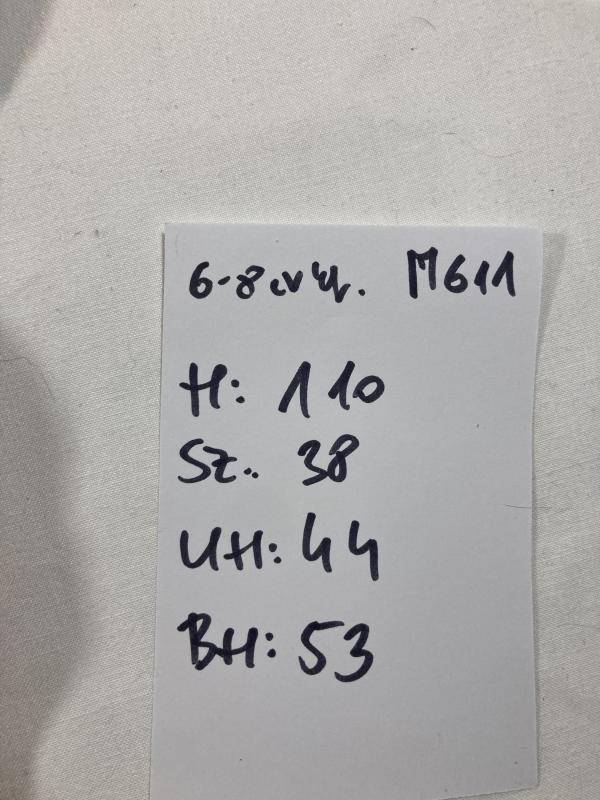 6-8 év kf. M611
H: 110
Sz.: 38
UH: 44
BH: 53